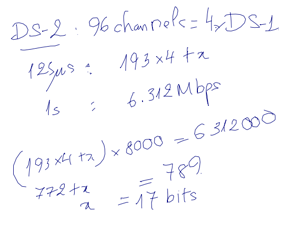 DS-2 : 96 channels = 4xDS-1
125μs : 193×4 + x
1s : 6.312Mbps
(193×4 + x) × 8000 = 6312000
772 + x = 789
x = 17 bits